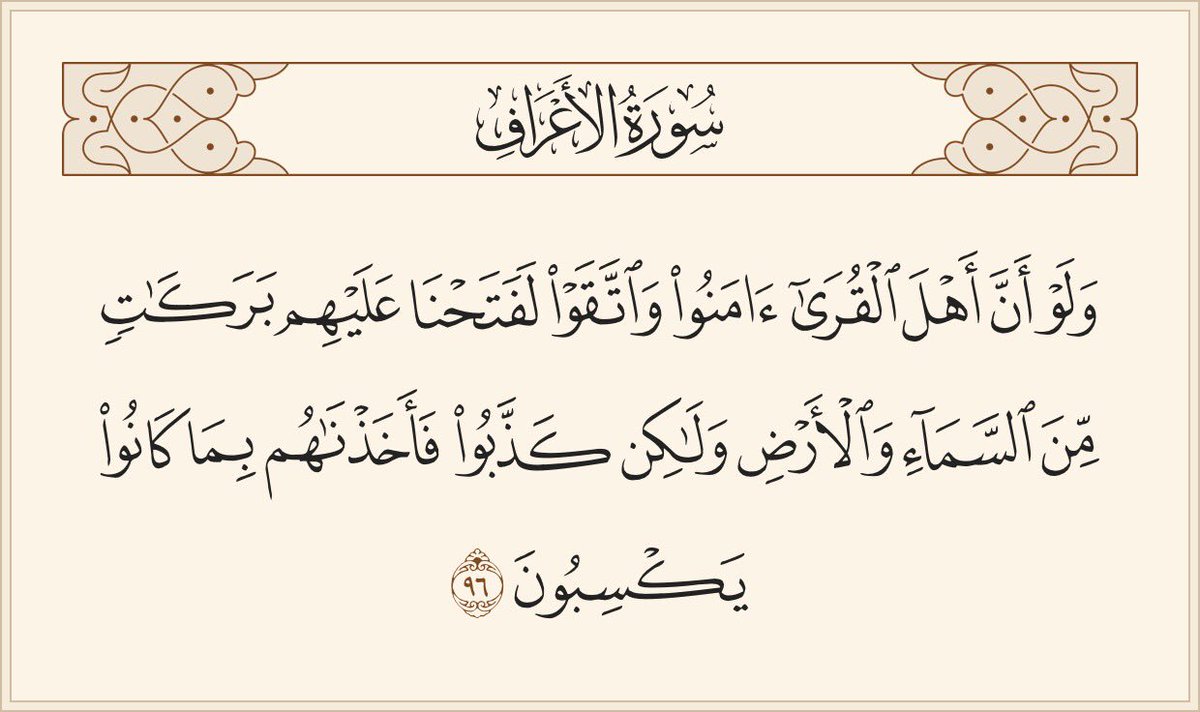 سُورَةُ الأَعْرَافِ
وَلَوْ أَنَّ أَهْلَ ٱلْقُرَىٰٓ ءَامَنُوا۟ وَٱتَّقَوْا۟ لَفَتَحْنَا عَلَيْهِم بَرَكَـٰتٍ
مِّنَ ٱلسَّمَآءِ وَٱلْأَرْضِ وَلَـٰكِن كَذَّبُوا۟ فَأَخَذْنَـٰهُم بِمَا كَانُوا۟
يَكْسِبُونَ ٩٦